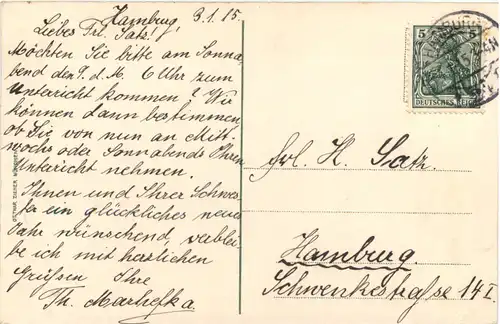 Hamburg, 3.1.15.
Liebes Frl. Satz!
Möchten Sie bitte am Sonna-
bend den 9. d. M. 6 Uhr zum
Unterricht kommen? Wir
können dann bestimmen,
ob Sie von nun an Mitt-
wochs oder Sonnabends Ihren
Unterricht nehmen.
Ihnen und Ihrer Schwes-
ter ein glückliches neues
Jahr wünschend, verblei-
be ich mit herzlichen
Grüßen Ihre
Th. Marhefka.
5 5
DEUTSCHES REICH
HAMBURG
Frl. H. Satz.
Hamburg
Schwenkestraße 14 I.